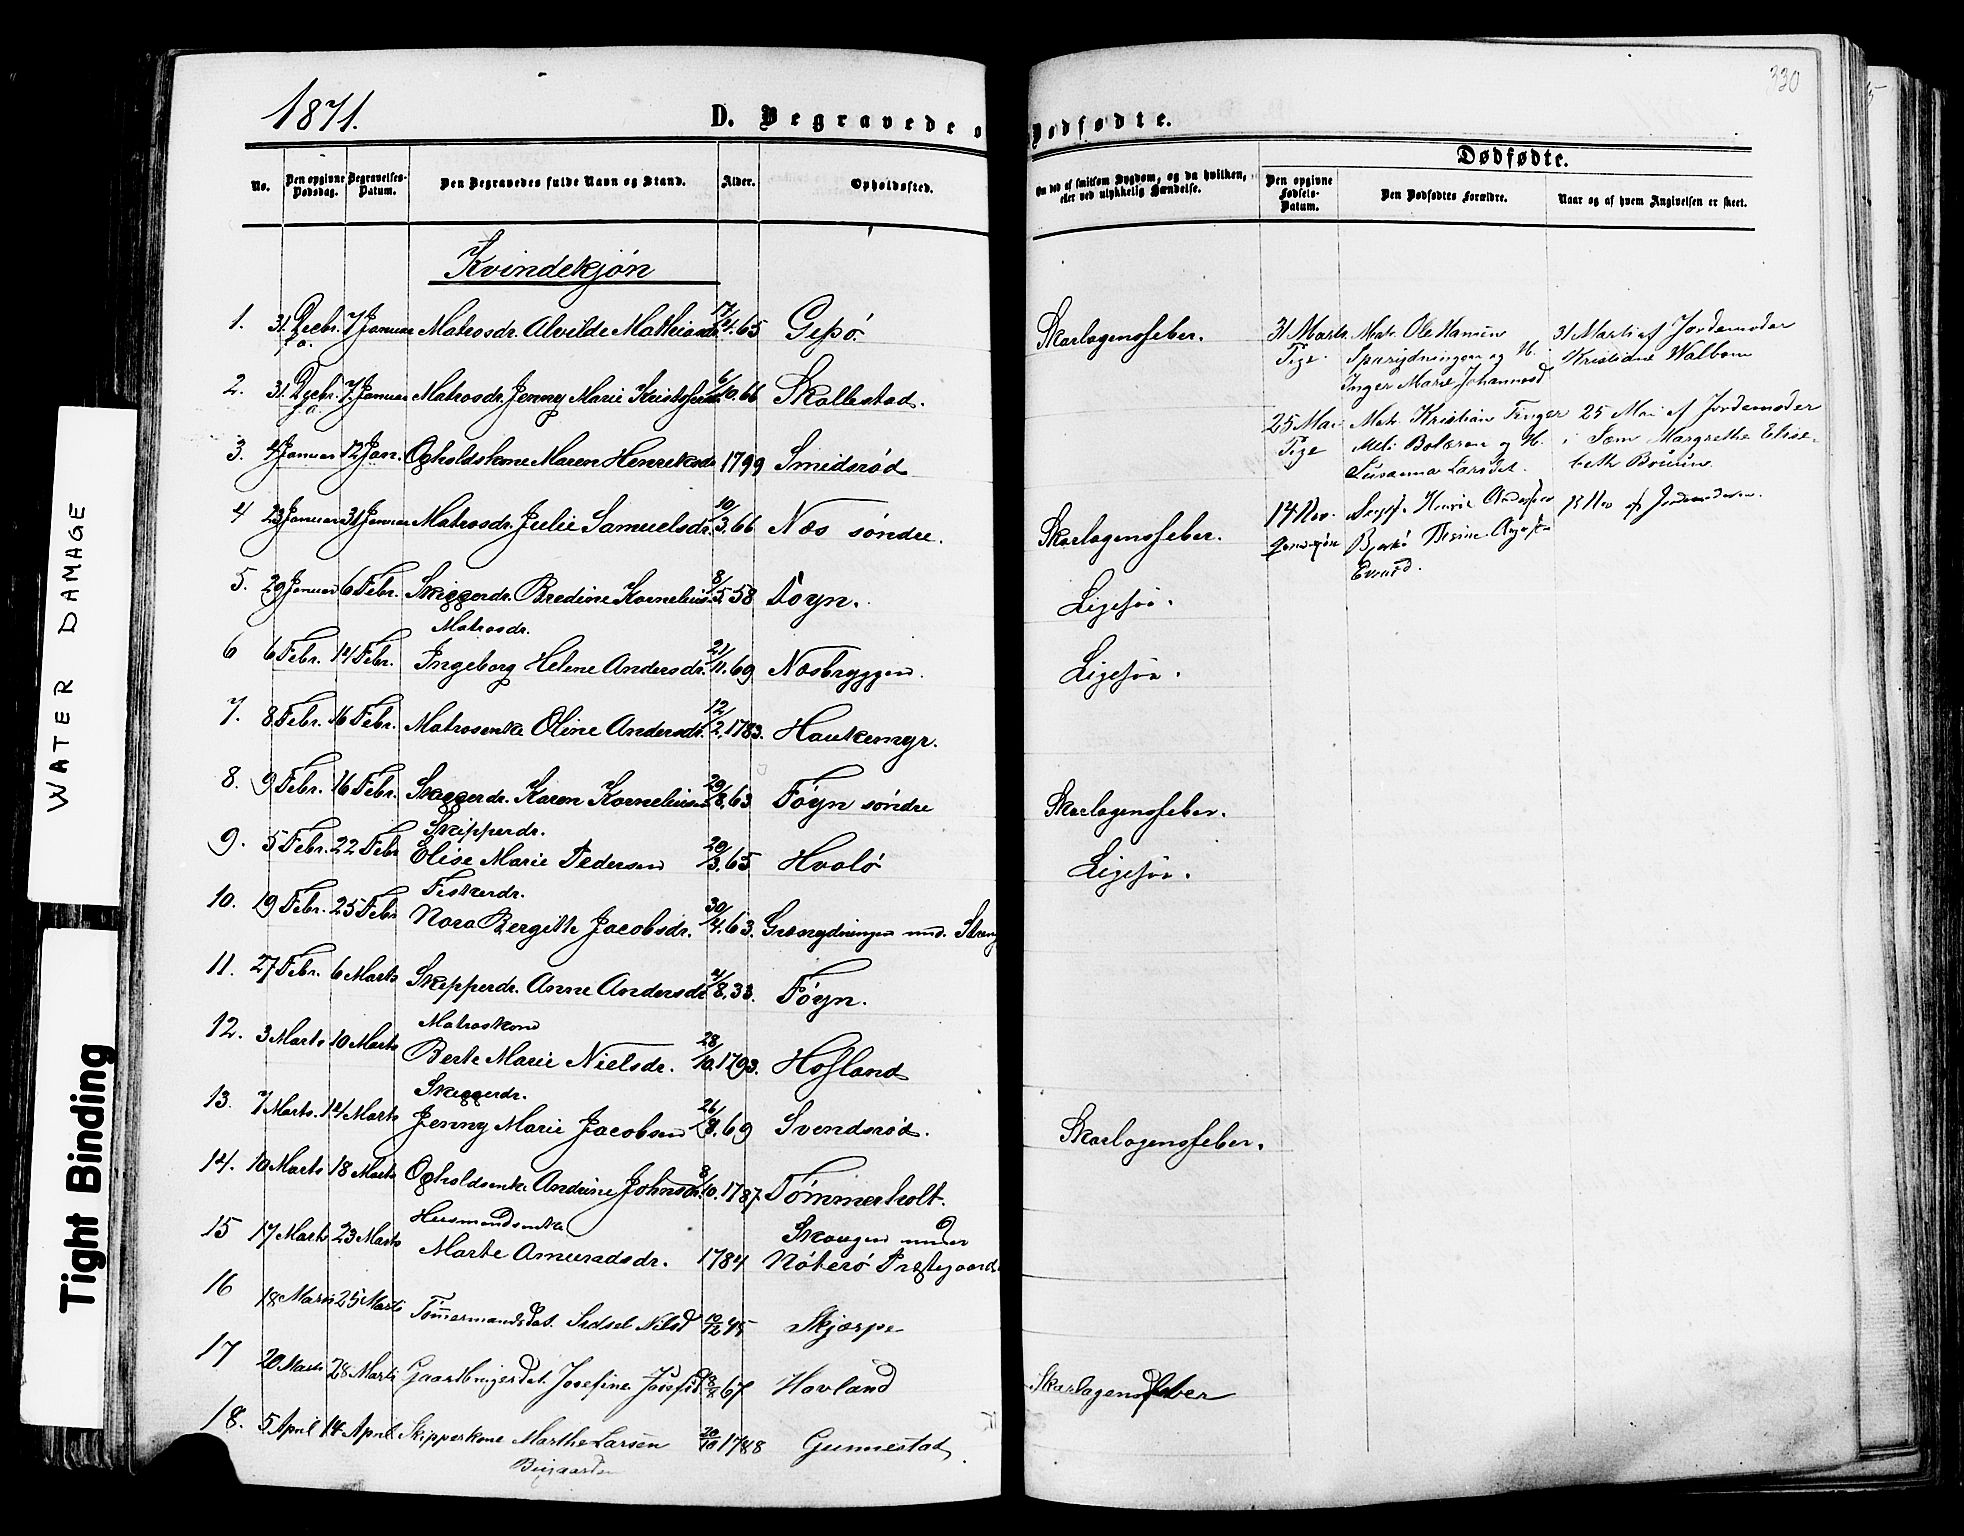 330
1871.
D. Begravede o
Dødfødte.
Dødfødte.
No.
Den opgivne Dødsdag.
Begravelses-Datum.
Den Begravedes fulde Navn og Stand.
Alder.
Opholdssted.
Om død af smitsom Sygdom, og da hvilken, eller ved ulykkelig Hændelse.
Den opgivne Fødsels-Datum.
Den Dødfødtes Forældre.
Naar og af hvem Angivelsen er skeet.
Kvindekjøn
1. 31 Decbr. f.a. 7 Januar Matrosdr. Alvilde Mathiasdr. 17/4.65 Gipø. Skarlagensfeber.
2. 31 Decbr. f.a. 7 Januar Matrosdr. Jenny Marie Kristofersdr. 6/10.66 Skallestad.
3. 4 Januar 12 Jan. Opholdskone Maren Henriksdr. 1799 Smidsrød
4 23 Januar 31 Januar Matrosdr. Julie Samuelsdr. 10/3.66 Næs søndre. Skarlagensfeber.
5. 29 Januar 6 Febr. Skipperdr. Bredine Kornelius. 8/5.58 Føyn. Ligesaa.
6 6 Febr. 14 Febr. Matrosdr. Ingeborg Helene Andersdr. 21/11.69 Næsbryggen. Ligesaa.
7. 8 Febr. 16 Febr. Matrosenke Oline Andersdr. 12/2.1783. Haukemyr.
8. 9 Febr. 16 Febr. Skipperdr. Karen Kornelius 29/8.63 Føyn søndre Skarlagensfeber.
9. 5 Febr. 22 Febr Skipperdr. Elise Marie Pedersen 20/3.65 Hvalø Ligesaa.
10. 19 Febr. 25 Febr Fiskerdr. Nora Bergitte Jacobsdr. 30/4.63. Grærydningen und. Streng
11. 27 Febr. 6 Marts Skipperdr. Anne Andersdr 4/8.33. Føyn.
12. 3 Marts 10 Marts Matroskone Berte Marie Nielsdr. 28/10.1793. Hofland
13. 7 Marts. 14 Marts Skipperdr. Jenny Marie Jacobsen 26/8.69 Svendsrød. Skarlagensfeber.
14. 10 Marts 18 Marts Opholdsenke Andrine Johnsdr. 8/10.1787. Tømmerholt.
15 17 Marts 23 Marts Husmandsenke Marte Amundsdr. 1784 Skaugen under Nøterø Præstegaard
16 18 Marts 25 Marts Tømmermandsdat. Sidsel Nilsd 12/12 45 Skjærpe
17 20 Marts 28 Marts Gaardbrugerdat. Josefine Josefsd 18/8 67 Hovland Skarlagensfeber
18. 5 April 14 April Skipperkone Marthe Larsen 20/10 1788 Gunnestad
Bugaarden
31 Marts Pige. Mat. Ole Hansen
Sparrydningen og H.
Inger Marie Johannesd
31 Marts af Jordemoder
Kristiane Walbom
25 Mai Pige Mat. Kristian
Bolæren og H.
Susanna Larsdat.
25 Mai af Jordemoder
i Sem Margrethe Elise-
beth
14 Nov. Henrik
Evensd.
15 Nov af Jordemoderen.
WATER DAMAGE
Tight Binding